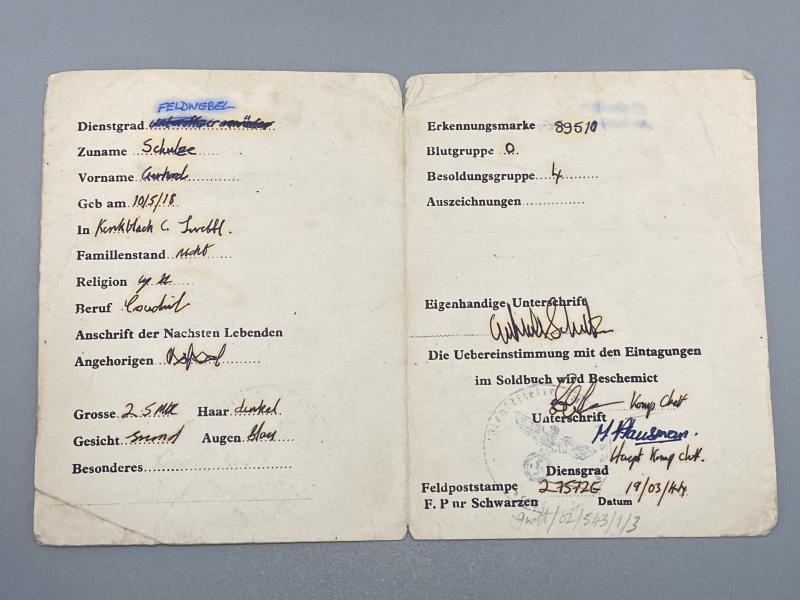 FELDWEBEL
Dienstgrad
Zuname Schulze
Vorname Gerhard
Geb am 10/5/18
In
Familienstand nicht
Religion
Beruf
Anschrift der Nachsten Lebenden
Angehorigen
Grosse 2.5 Haar dunkel
Gesicht Augen blau
Besonderes
Erkennungsmarke 89510
Blutgruppe O
Besoldungsgruppe 4
Auszeichnungen
Eigenhandige Unterschrift
Die Uebereinstimmung mit den Eintagungen
im Soldbuch wird Beschemict
Komp Chef
Unterschrift
H Hausman.
Haupt Komp chf.
Diensgrad
Feldpoststampe 27572E 19/03/44
F. P nr Schwarzen Datum
/02/543/1/3